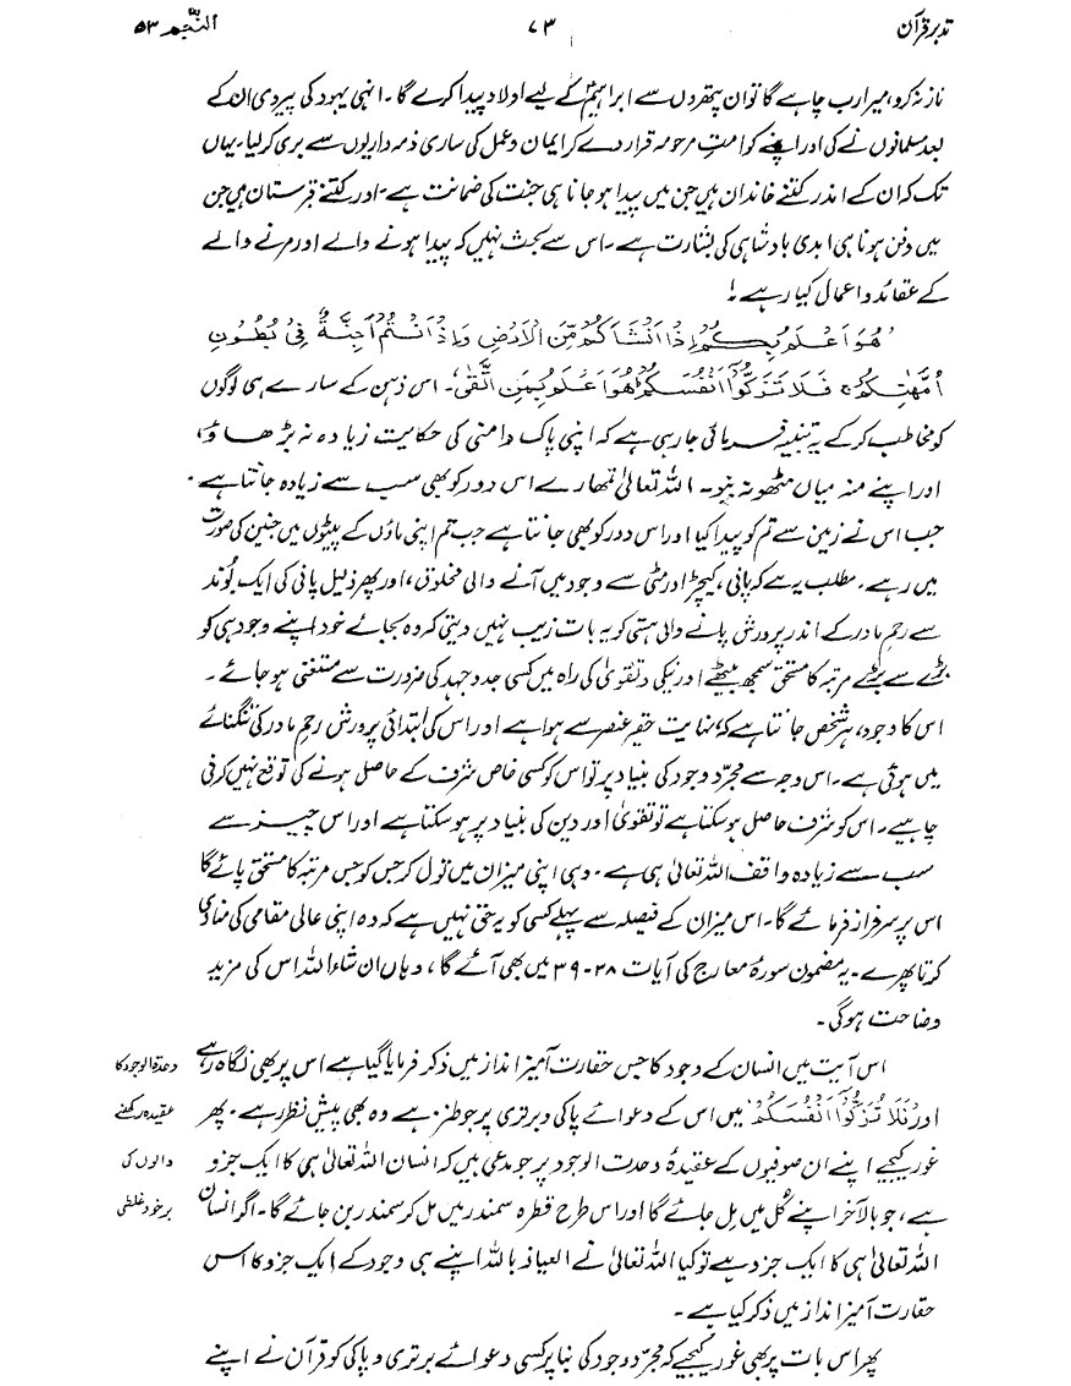 تدبر قرآن ۷۳ النّجم ۵۳
ناز نہ کرو، میرا رب چاہے گا تو ان پتھروں سے ابراہیمؑ کے لیے اولاد پیدا کرے گا۔ انہی یہود کی پیروی ان کے
بعد مسلمانوں نے کی اور اپنے کو امتِ مرحومہ قرار دے کر ایمان و عمل کی ساری ذمہ داریوں سے بری کر لیا۔ یہاں
تک کہ ان کے اندر کتنے خاندان ہیں جن میں پیدا ہو جانا ہی جنت کی ضمانت ہے۔ اور کتنے قبرستان ہیں جن
میں دفن ہونا ہی ابدی بادشاہی کی بشارت ہے۔ اس سے بحث نہیں کہ پیدا ہونے والے اور مرنے والے
کے عقائد و اعمال کیا رہے!
’هُوَ اَعْلَمُ بِكُمْ اِذْ اَنْشَاَكُمْ مِّنَ الْاَرْضِ وَاِذْ اَنْتُمْ اَجِنَّةٌ فِيْ بُطُوْنِ
اُمَّهٰتِكُمْ فَلَا تُزَكُّوْٓا اَنْفُسَكُمْ هُوَ اَعْلَمُ بِمَنِ اتَّقٰى‘۔ اس ذہن کے سارے ہی لوگوں
کو مخاطب کر کے یہ تنبیہ فرمائی جا رہی ہے کہ اپنی پاک دامنی کی حکایت زیادہ نہ بڑھاؤ،
اور اپنے منہ میاں مٹھو نہ بنو۔ اللہ تعالیٰ تمھارے اس دور کو بھی سب سے زیادہ جانتا ہے۔
جب اس نے زمین سے تم کو پیدا کیا اور اس دور کو بھی جانتا ہے جب تم اپنی ماؤں کے پیٹوں میں جنین کی صورت
میں رہے۔ مطلب یہ ہے کہ پانی، کیچڑ اور مٹی سے وجود میں آنے والی مخلوق، اور پھر ذلیل پانی کی ایک بُوند
سے رحمِ مادر کے اندر پرورش پانے والی ہستی کو یہ بات زیب نہیں دیتی کہ وہ بجائے خود اپنے وجود ہی کو
بڑے سے بڑے مرتبہ کا مستحق سمجھ بیٹھے اور نیکی و تقویٰ کی راہ میں کسی جدوجہد کی ضرورت سے مستغنی ہو جائے۔
اس کا وجود، ہر شخص جانتا ہے کہ، نہایت حقیر عنصر سے ہوا ہے اور اس کی ابتدائی پرورش رحمِ مادر کی تنگنائے
میں ہوتی ہے۔ اس وجہ سے مجرّد وجود کی بنیاد پر تو اس کو کسی خاص شرف کے حاصل ہونے کی توقع نہیں کرنی
چاہیے۔ اس کو شرف حاصل ہو سکتا ہے تو تقویٰ اور دین کی بنیاد پر ہو سکتا ہے اور اس چیز سے
سب سے زیادہ واقف اللہ تعالیٰ ہی ہے۔ وہی اپنی میزان میں تول کر جس کو جس مرتبہ کا مستحق پائے گا
اس پر سرفراز فرمائے گا۔ اس میزان کے فیصلہ سے پہلے کسی کو یہ حق نہیں ہے کہ وہ اپنی عالی مقامی کی منادی
کرتا پھرے۔ یہ مضمون سورۂ معارج کی آیات ۳۸-۳۹ میں بھی آئے گا، وہاں ان شاء اللہ اس کی مزید
وضاحت ہوگی۔
اس آیت میں انسان کے وجود کا جس حقارت آمیز انداز میں ذکر فرمایا گیا ہے اس پر بھی نگاہ رہے وحدۃ الوجود کا
اور ’فَلَا تُزَكُّوْٓا اَنْفُسَكُمْ‘ میں اس کے دعوائے پاکی و برتری پر جو طنز ہے وہ بھی پیشِ نظر رہے۔ پھر عقیدہ رکھنے
غور کیجیے اپنے ان صوفیوں کے عقیدۂ وحدت الوجود پر جو مدعی ہیں کہ انسان اللہ تعالیٰ ہی کا ایک جزو والوں کی
ہے، جو بالآخر اپنے کُل میں مل جائے گا اور اس طرح قطرہ سمندر میں مل کر سمندر بن جائے گا۔ اگر انسان برخود غلطی
اللہ تعالیٰ ہی کا ایک جزو ہے تو کیا اللہ تعالیٰ نے العیاذ باللہ اپنے ہی وجود کے ایک جزو کا اس
حقارت آمیز انداز میں ذکر کیا ہے۔
پھر اس بات پر بھی غور کیجیے کہ مجرّد وجود کی بنا پر کسی دعوائے برتری و پاکی کو قرآن نے اپنے